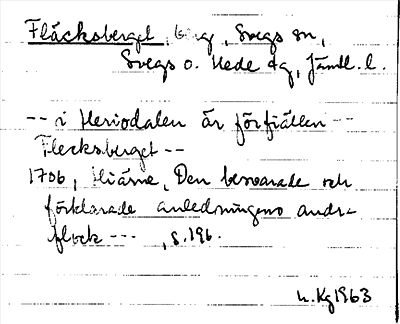 Fläcksberget, berg, Svegs sn,
Svegs o. Hede dg, Jämtl. l.
-- i Heriodalen är förfiällen --
Flecksberget --
1706, Hiärne, Den beswarade och
förklarade anledningens andra
flock --- , s. 196.
n. Kg 1963